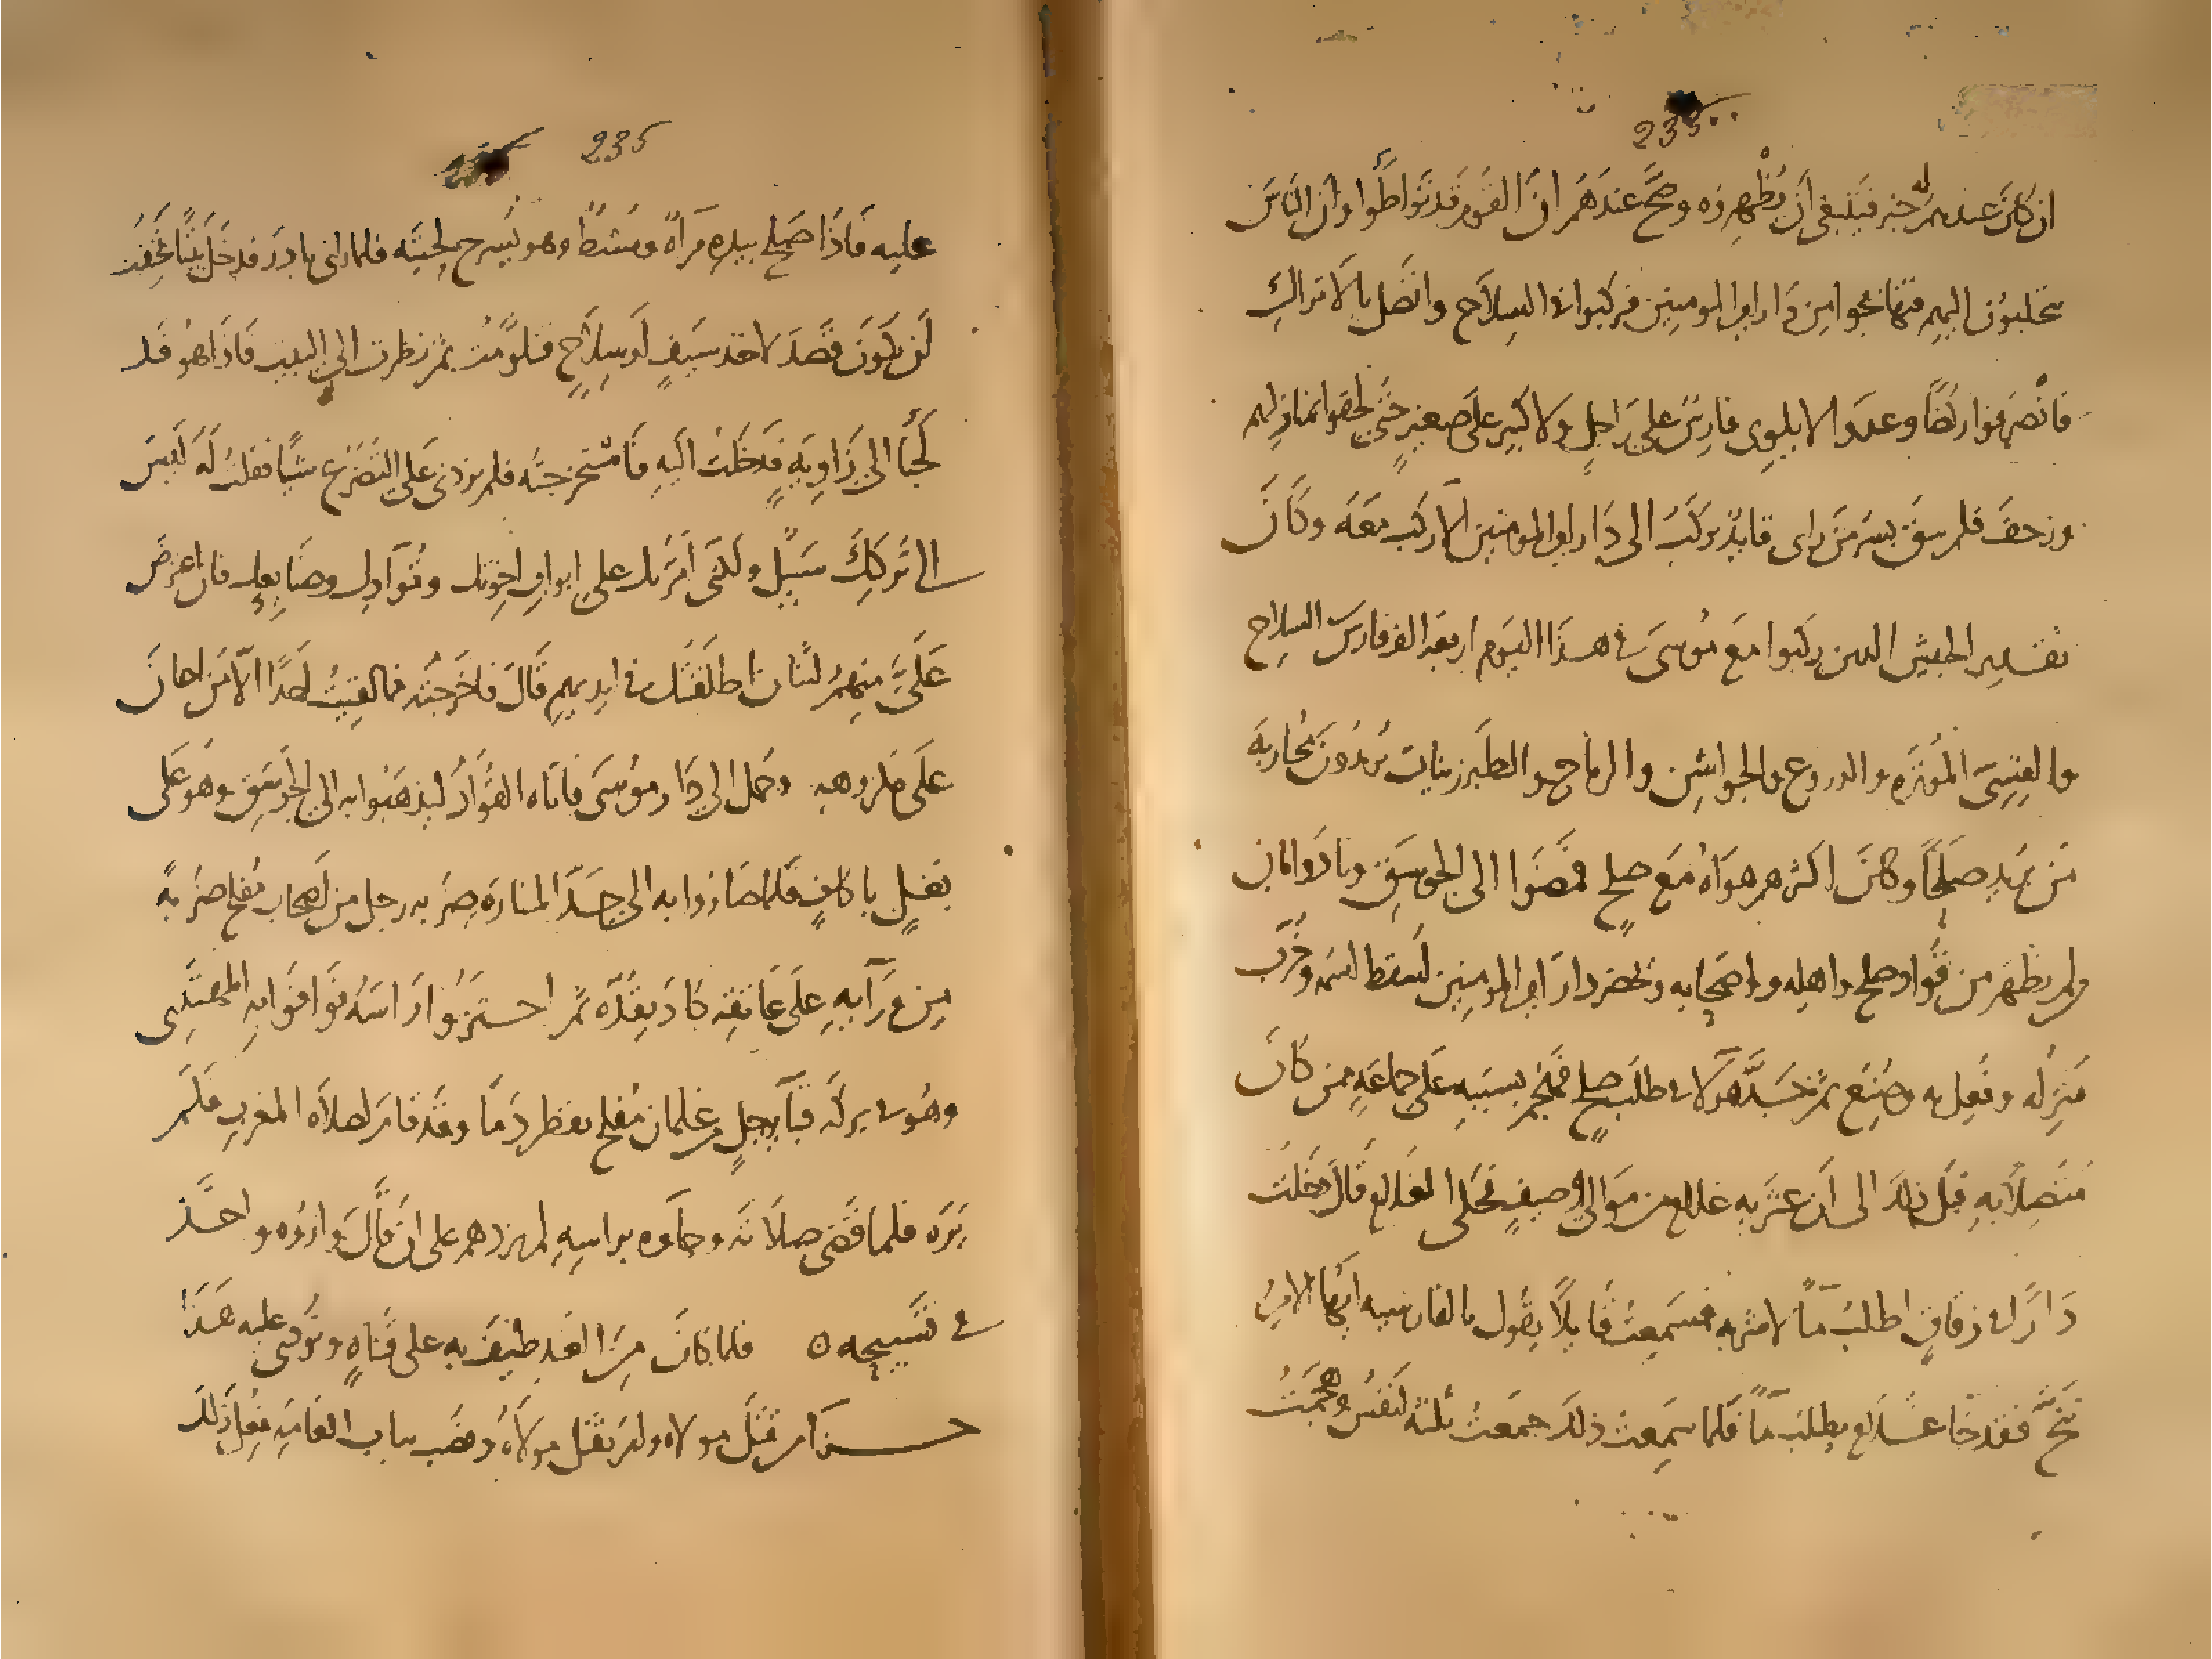 235
ان كان عندهم له خبر فينبغي أن يُظْهِروه وصحَّ عندهم ان القوم قد تواطَؤا وان الناس
فنهانجوا من دار امير المومنين فركبوا في السلاح واتصل بالاتراك
فانصرفوا ركضًا وعدوا لا يلوى فارس على راجلٍ ولا كبير على صغيرٍ حتى لحقوا بمنازلهم
وزحف فلم يبق بسر من راى قايد يركب الى دار امير المومنين الا ركب معه وكان
تقدير الجيش الذين ركبوا مع موسى في هذا اليوم اربعة الف فارس في السلاح
والقِسِيّ المُوترَه والدروع والجواشن والرماح والطبرزينات يريدون محاربه
من يريد صلحًا وكان اكثرهم هواه مع صلح فمضوا الى الجوسق ونادوا بان
ولم يظهر من قواد صلح واهله واصحابه ويحضر دار امير المومنين اسقط اسمه وخُرّب
منزله وفُعِل به وصُنِع ثم تجرّد هولاء في طلب صلح فهُجِم بسببه على جماعهٍ ممن كان
متصلًا به قبل ذلك الى أن عثر به غلام من موالي وصيفٍ فحكى الغلام قال دخلت
دارًا في زقاقٍ اطلب مآً لاشربه فسمعت قايلًا يقول بالفارسيه ايها الامير
تنحّ فقد جا غلام يطلب مآً فلما سمعت ذلك جمعت ثلثة انفس وهجمت
235
عليه فاذا صلح بيده مرآة ومشط وهو يسرح لحيته فلما رانى بادر فدخل بيتًا فخِفتُ
أن يكون قصد لاخذ سيفٍ أو سلاحٍ فتلوّمتُ ثم نظرت الى البيت فاذا هو قد
لجأ الى زاويةٍ فدخلت اليه فاستخرجته فلم يزدنى على التضرع شيًا فقلت له ليس
الى تركك سبيل ولكنى أمرّ بك على ابواب اخوتك وقوادك وصنايعك فان اعترض
علىّ منهم اثنان اطلقتك في ايديهم قال فاخرجته فما لقيت احدًا الّا من اعان
على مكروهه وحمل الى دار موسى فاتاه القوّاد ليذهبوا به الى الجوسق وهو على
بغلٍ باكافٍ فلما صاروا به الى حدّ المناره ضربه رجل من اصحاب مفلح ضربةً
من ورآيه على عاتقه كاد يقدّه ثم احتزوا راسه فوافوا به المهتدي
وهو في بركة قبآ رجلٍ من غلمان مُفلح يقطر دمًا وقد قام لصلاه المغرب فلم
يَره فلما قضى صلاته وجآوه براسِهِ لم يزدهم على ان قال واروه واخذ
في تسبيحه ه فلما كان من الغد طيف به على قناهٍ ونودى عليه هذا
جزآ من قتل مولاه ولم يقتل مولاه ونُصب بباب العامه ففعل ذلك